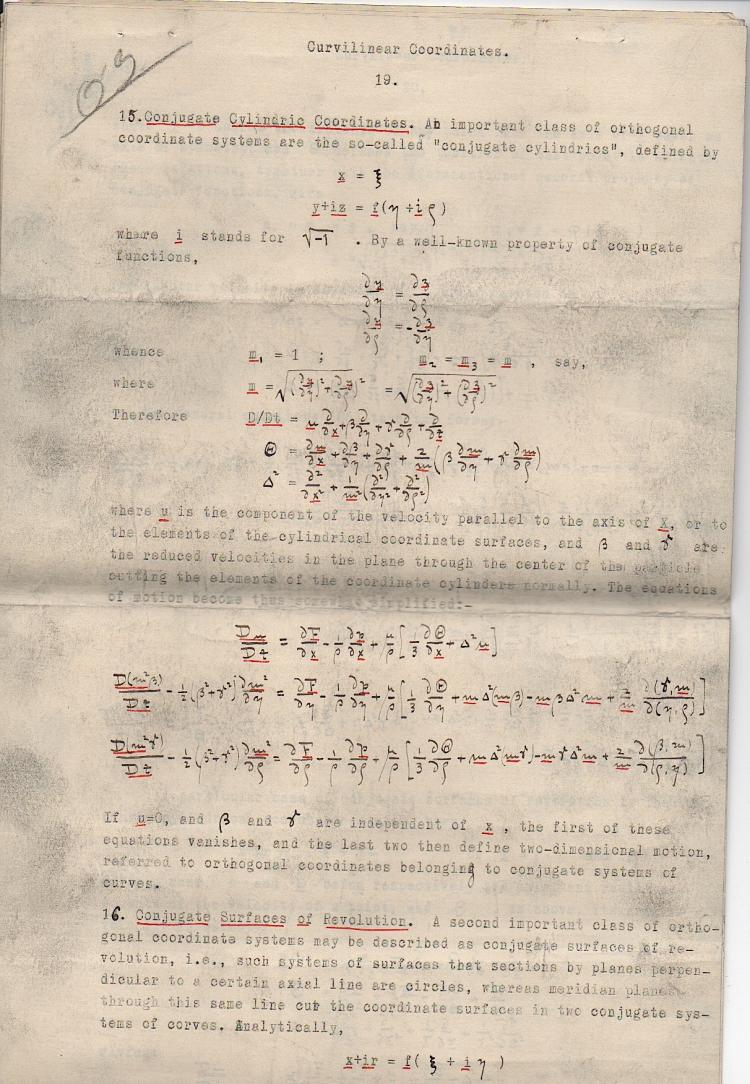 09
Curvilinear Coordinates.
19.
15. Conjugate Cylindric Coordinates. An important class of orthogonal
coordinate systems are the so-called "conjugate cylindrics", defined by
x = ξ
y+iz = f(η + iρ)
where i stands for √-1 . By a well-known property of conjugate
functions,
∂y/∂η = ∂z/∂ρ
∂y/∂ρ = -∂z/∂η
whence m₁ = 1 ; m₂ = m₃ = m , say,
where m = √((∂y/∂η)²+(∂y/∂ρ)²) = √((∂z/∂η)²+(∂z/∂ρ)²)
Therefore D/Dt = u ∂/∂x + β ∂/∂η + γ ∂/∂ρ + ∂/∂t
Θ = ∂u/∂x + ∂β/∂η + ∂γ/∂ρ + 2/m (β ∂m/∂η + γ ∂m/∂ρ)
Δ² = ∂²/∂x² + 1/m² (∂²/∂η² + ∂²/∂ρ²)
where u is the component of the velocity parallel to the axis of X, or to
the elements of the cylindrical coordinate surfaces, and β and γ are
the reduced velocities in the plane through the center of the particle
cutting the elements of the coordinate cylinders normally. The equations
of motion become thus somewhat simplified:-
Du/Dt = ∂F/∂x - 1/ρ ∂p/∂x + μ/ρ [1/3 ∂Θ/∂x + Δ²u]
D(m²β)/Dt - ½(β²+γ²) ∂m²/∂η = ∂F/∂η - 1/ρ ∂p/∂η + μ/ρ [1/3 ∂Θ/∂η + m Δ²(mβ) - mβ Δ²m + 2/m ∂(γ,m)/∂(η,ρ)]
D(m²γ)/Dt - ½(β²+γ²) ∂m²/∂ρ = ∂F/∂ρ - 1/ρ ∂p/∂ρ + μ/ρ [1/3 ∂Θ/∂ρ + m Δ²(mγ) - mγ Δ²m + 2/m ∂(β,m)/∂(ρ,η)]
If u=0, and β and γ are independent of x , the first of these
equations vanishes, and the last two then define two-dimensional motion,
referred to orthogonal coordinates belonging to conjugate systems of
curves.
16. Conjugate Surfaces of Revolution. A second important class of ortho-
gonal coordinate systems may be described as conjugate surfaces of re-
volution, i.e., such systems of surfaces that sections by planes perpen-
dicular to a certain axial line are circles, whereas meridian planes
through this same line cut the coordinate surfaces in two conjugate sys-
tems of corves. Analytically,
x+ir = f( ξ + i η )